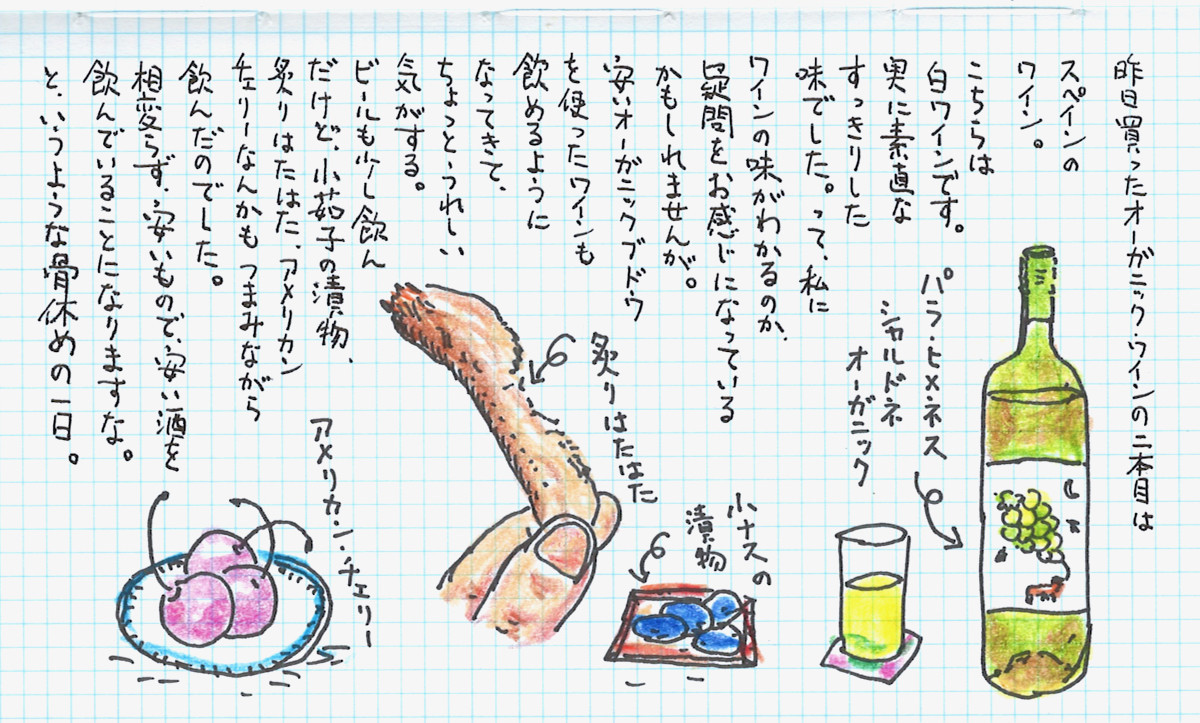 昨日買ったオーガニック・ワインの二本目は
スペインの
ワイン。
こちらは
白ワインです。
実に素直な
すっきりした
味でした。って、私に
ワインの味がわかるのか、
疑問をお感じになっている
かもしれませんが。
安いオーガニックブドウ
を使ったワインも
飲めるように
なってきて、
ちょっとうれしい
気がする。
ビールも少し飲ん
だけど、小茄子の漬物、
炙りはたはた、アメリカン
チェリーなんかもつまみながら
飲んだのでした。
相変らず、安いもので、安い酒を
飲んでいることになりますな。
と、いうような骨休めの一日。
パラ・ヒメネス
シャルドネ
オーガニック
炙りはたはた
小ナスの
漬物
アメリカン・チェリー